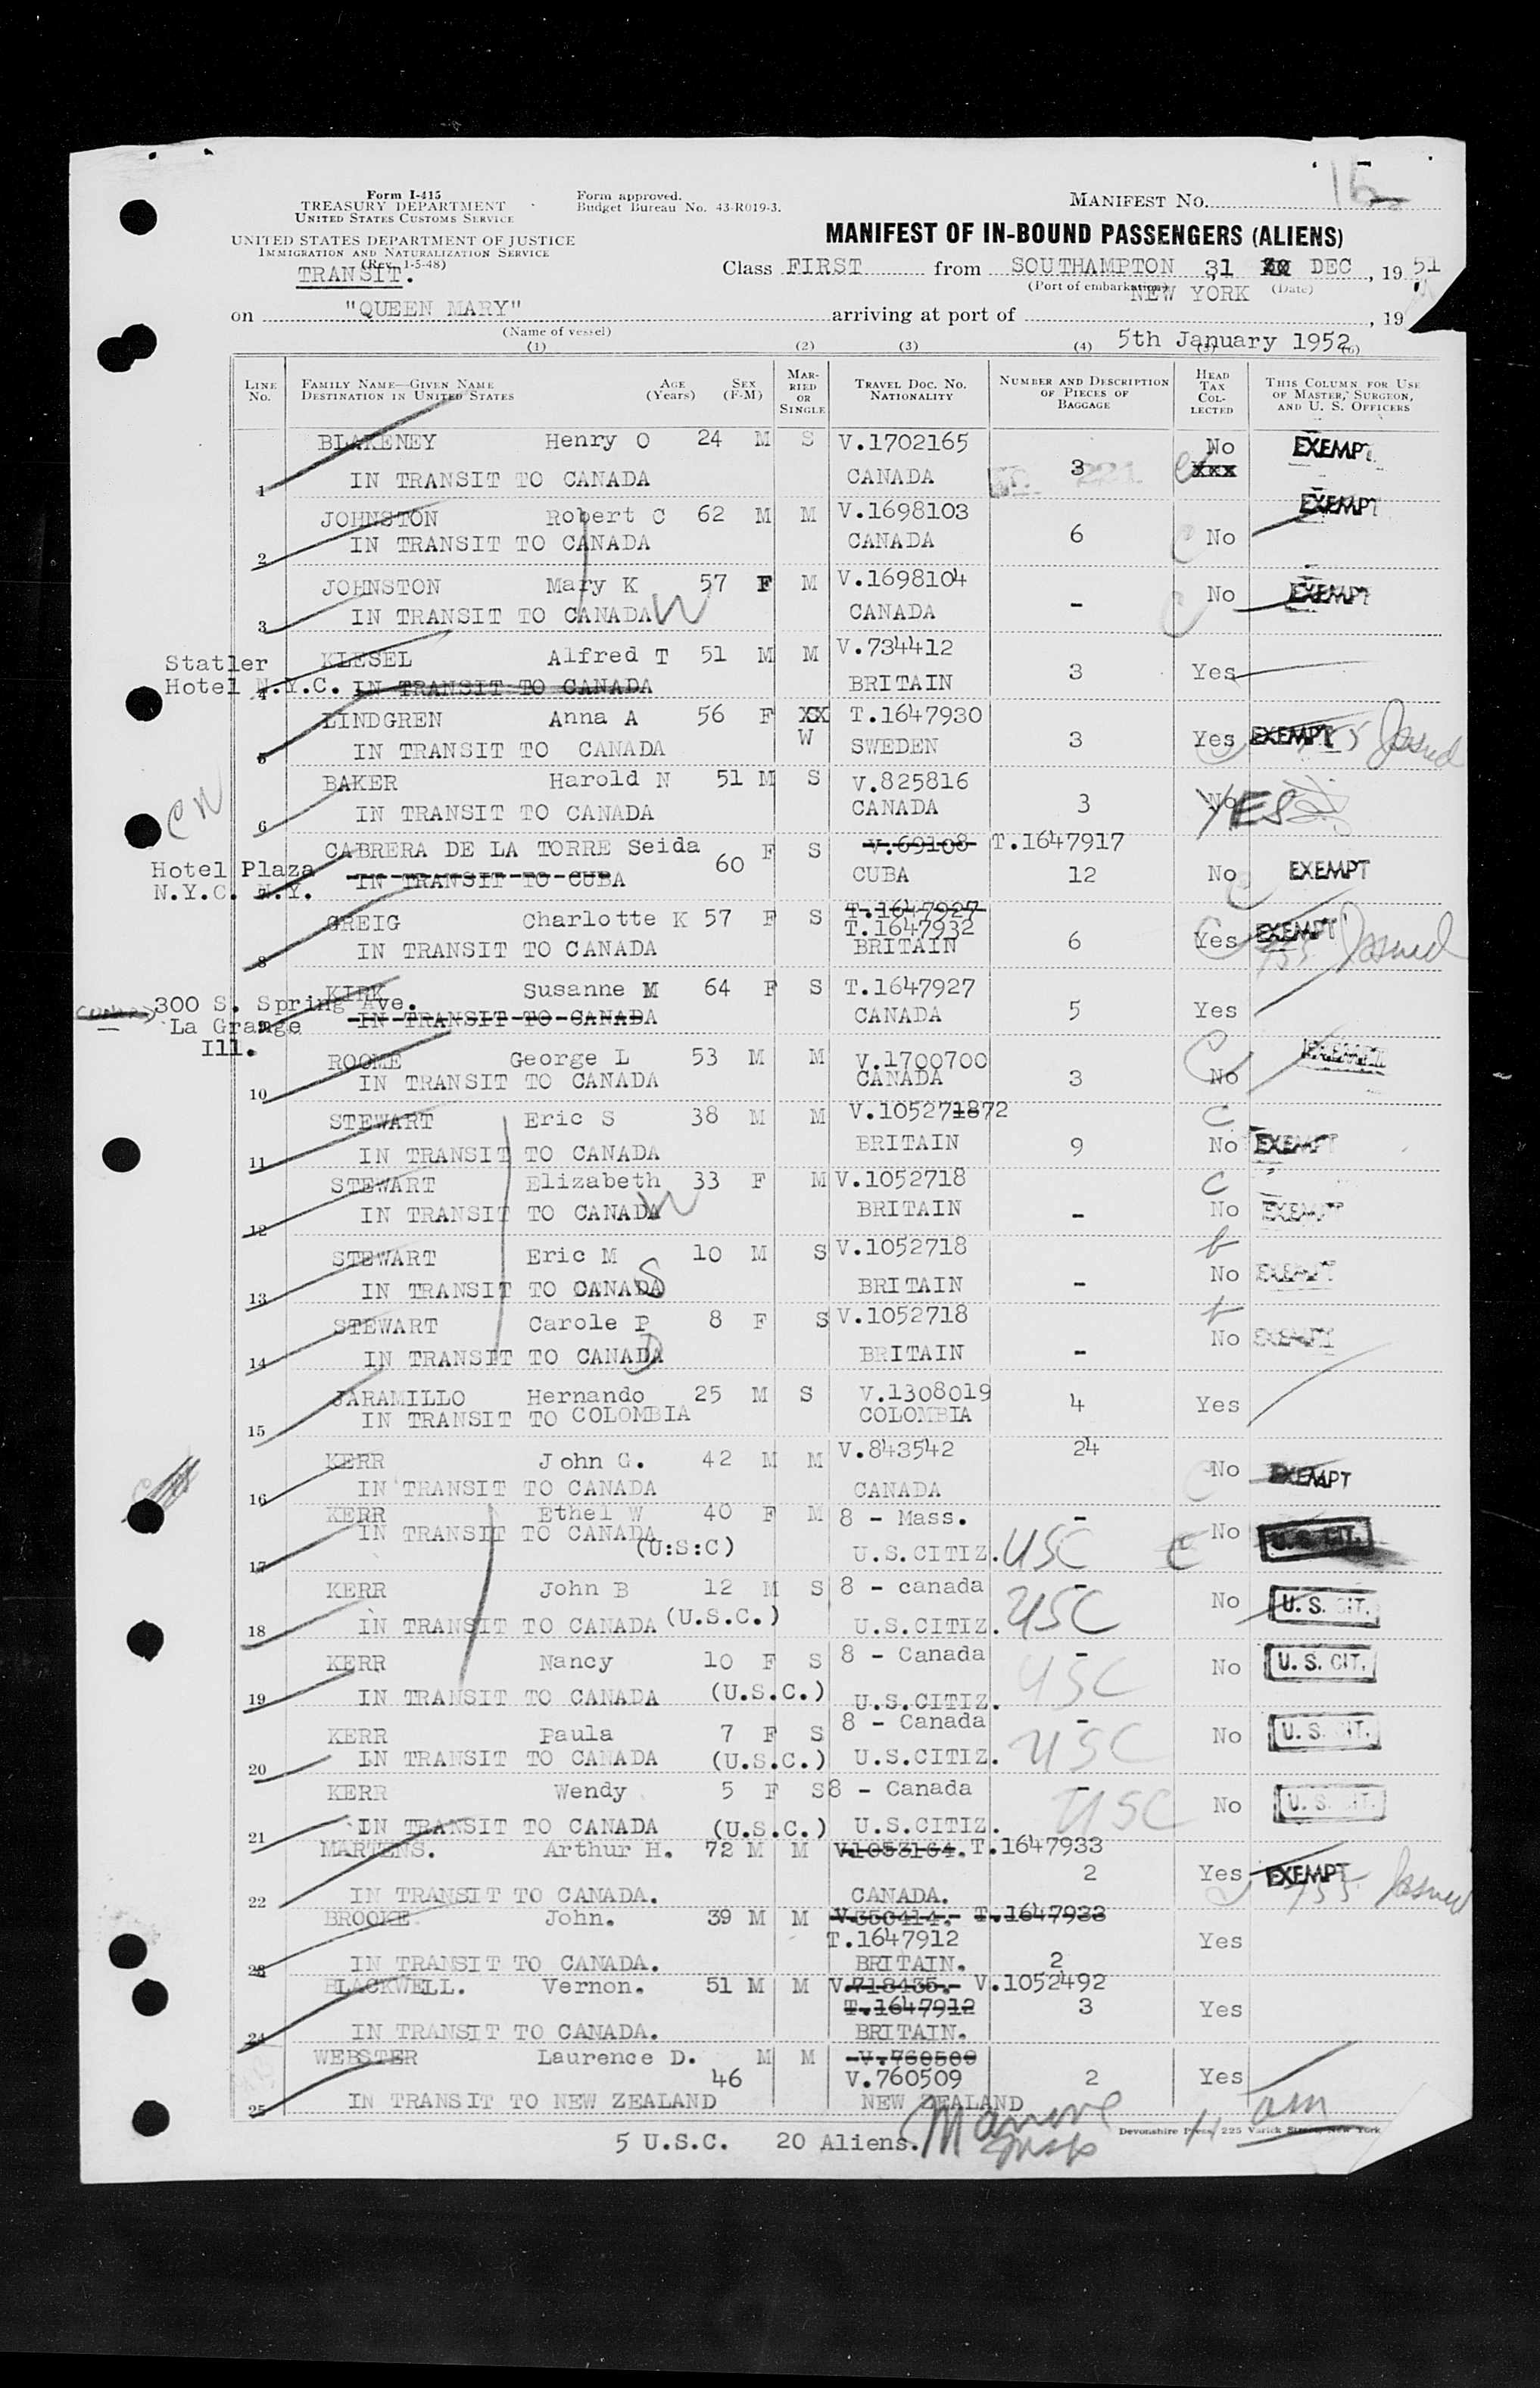 15
Form I-415
TREASURY DEPARTMENT
UNITED STATES CUSTOMS SERVICE
Form approved.
Budget Bureau No. 43-R019-3.
MANIFEST NO.
UNITED STATES DEPARTMENT OF JUSTICE
IMMIGRATION AND NATURALIZATION SERVICE
(Rev. 1-5-48)
TRANSIT.
MANIFEST OF IN-BOUND PASSENGERS (ALIENS)
Class FIRST from SOUTHAMPTON 31 DEC, 1951
(Port of embarkation) (Date)
on "QUEEN MARY" arriving at port of NEW YORK, 19
(Name of vessel)
5th January 1952
(1) (2) (3) (4) (5) (6)
LINE No. FAMILY NAME—GIVEN NAME DESTINATION IN UNITED STATES AGE (Years) SEX (F-M) MARRIED OR SINGLE TRAVEL DOC. NO. NATIONALITY NUMBER AND DESCRIPTION OF PIECES OF BAGGAGE HEAD TAX COLLECTED THIS COLUMN FOR USE OF MASTER, SURGEON, AND U. S. OFFICERS
BLAKENEY Henry O 24 M S V.1702165 No EXEMPT
1 IN TRANSIT TO CANADA CANADA 3 xxx
JOHNSTON Robert C 62 M M V.1698103 EXEMPT
2 IN TRANSIT TO CANADA CANADA 6 No
JOHNSTON Mary K 57 F M V.1698104 No EXEMPT
3 IN TRANSIT TO CANADA W CANADA -
Statler KLESEL Alfred T 51 M M V.734412 3 Yes
Hotel N.Y.C. 4 IN TRANSIT TO CANADA BRITAIN
LINDGREN Anna A 56 F XX W T.1647930
5 IN TRANSIT TO CANADA SWEDEN 3 Yes EXEMPT 155 Issued
BAKER Harold N 51 M S V.825816
6 IN TRANSIT TO CANADA CANADA 3 No YES
CABRERA DE LA TORRE Seida 60 F S V.69108 T.1647917
Hotel Plaza N.Y.C. N.Y. IN TRANSIT TO CUBA CUBA 12 No EXEMPT
GREIG Charlotte K 57 F S T.1647927 T.1647932
8 IN TRANSIT TO CANADA BRITAIN 6 Yes EXEMPT 155 Issued
KIRK Susanne M 64 F S T.1647927
300 S. Spring Ave. La Grange Ill. 9 IN TRANSIT TO CANADA CANADA 5 Yes
ROOME George L 53 M M V.1700700
10 IN TRANSIT TO CANADA CANADA 3 No
STEWART Eric S 38 M M V.105271872
11 IN TRANSIT TO CANADA BRITAIN 9 No EXEMPT
STEWART Elizabeth 33 F M V.1052718
12 IN TRANSIT TO CANADA W BRITAIN - No EXEMPT
STEWART Eric M 10 M S V.1052718
13 IN TRANSIT TO CANADA S BRITAIN - No EXEMPT
STEWART Carole P 8 F S V.1052718
14 IN TRANSIT TO CANADA D BRITAIN - No EXEMPT
JARAMILLO Hernando 25 M S V.1308019
15 IN TRANSIT TO COLOMBIA COLOMBIA 4 Yes
KERR John G. 42 M M V.843542 24
16 IN TRANSIT TO CANADA CANADA No EXEMPT
KERR Ethel W 40 F M 8 - Mass. -
17 IN TRANSIT TO CANADA (U:S:C) U.S.CITIZ. USC No U.S. CIT.
KERR John B 12 M S 8 - canada -
18 IN TRANSIT TO CANADA (U.S.C.) U.S.CITIZ. USC No U. S. CIT.
KERR Nancy 10 F S 8 - Canada -
19 IN TRANSIT TO CANADA (U.S.C.) U.S.CITIZ. USC No U. S. CIT.
KERR Paula 7 F S 8 - Canada -
20 IN TRANSIT TO CANADA (U.S.C.) U.S.CITIZ. USC No U. S. CIT.
KERR Wendy 5 F S 8 - Canada -
21 IN TRANSIT TO CANADA (U.S.C.) U.S.CITIZ. USC No U. S. CIT.
MARTENS. Arthur H. 72 M M V.1053164. T.1647933
22 IN TRANSIT TO CANADA. CANADA. 2 Yes EXEMPT 155 Issued
BROOKE John. 39 M M V.350414. T.1647933
T.1647912
23 IN TRANSIT TO CANADA. BRITAIN. 2 Yes
BLACKWELL. Vernon. 51 M M V.718435. V.1052492
T.1647912 3 Yes
24 IN TRANSIT TO CANADA. BRITAIN.
WEBSTER Laurence D. 46 M M V.760509
V.760509 2 Yes
25 IN TRANSIT TO NEW ZEALAND NEW ZEALAND
5 U.S.C. 20 Aliens.
Devonshire Press, 225 Varick Street, New York